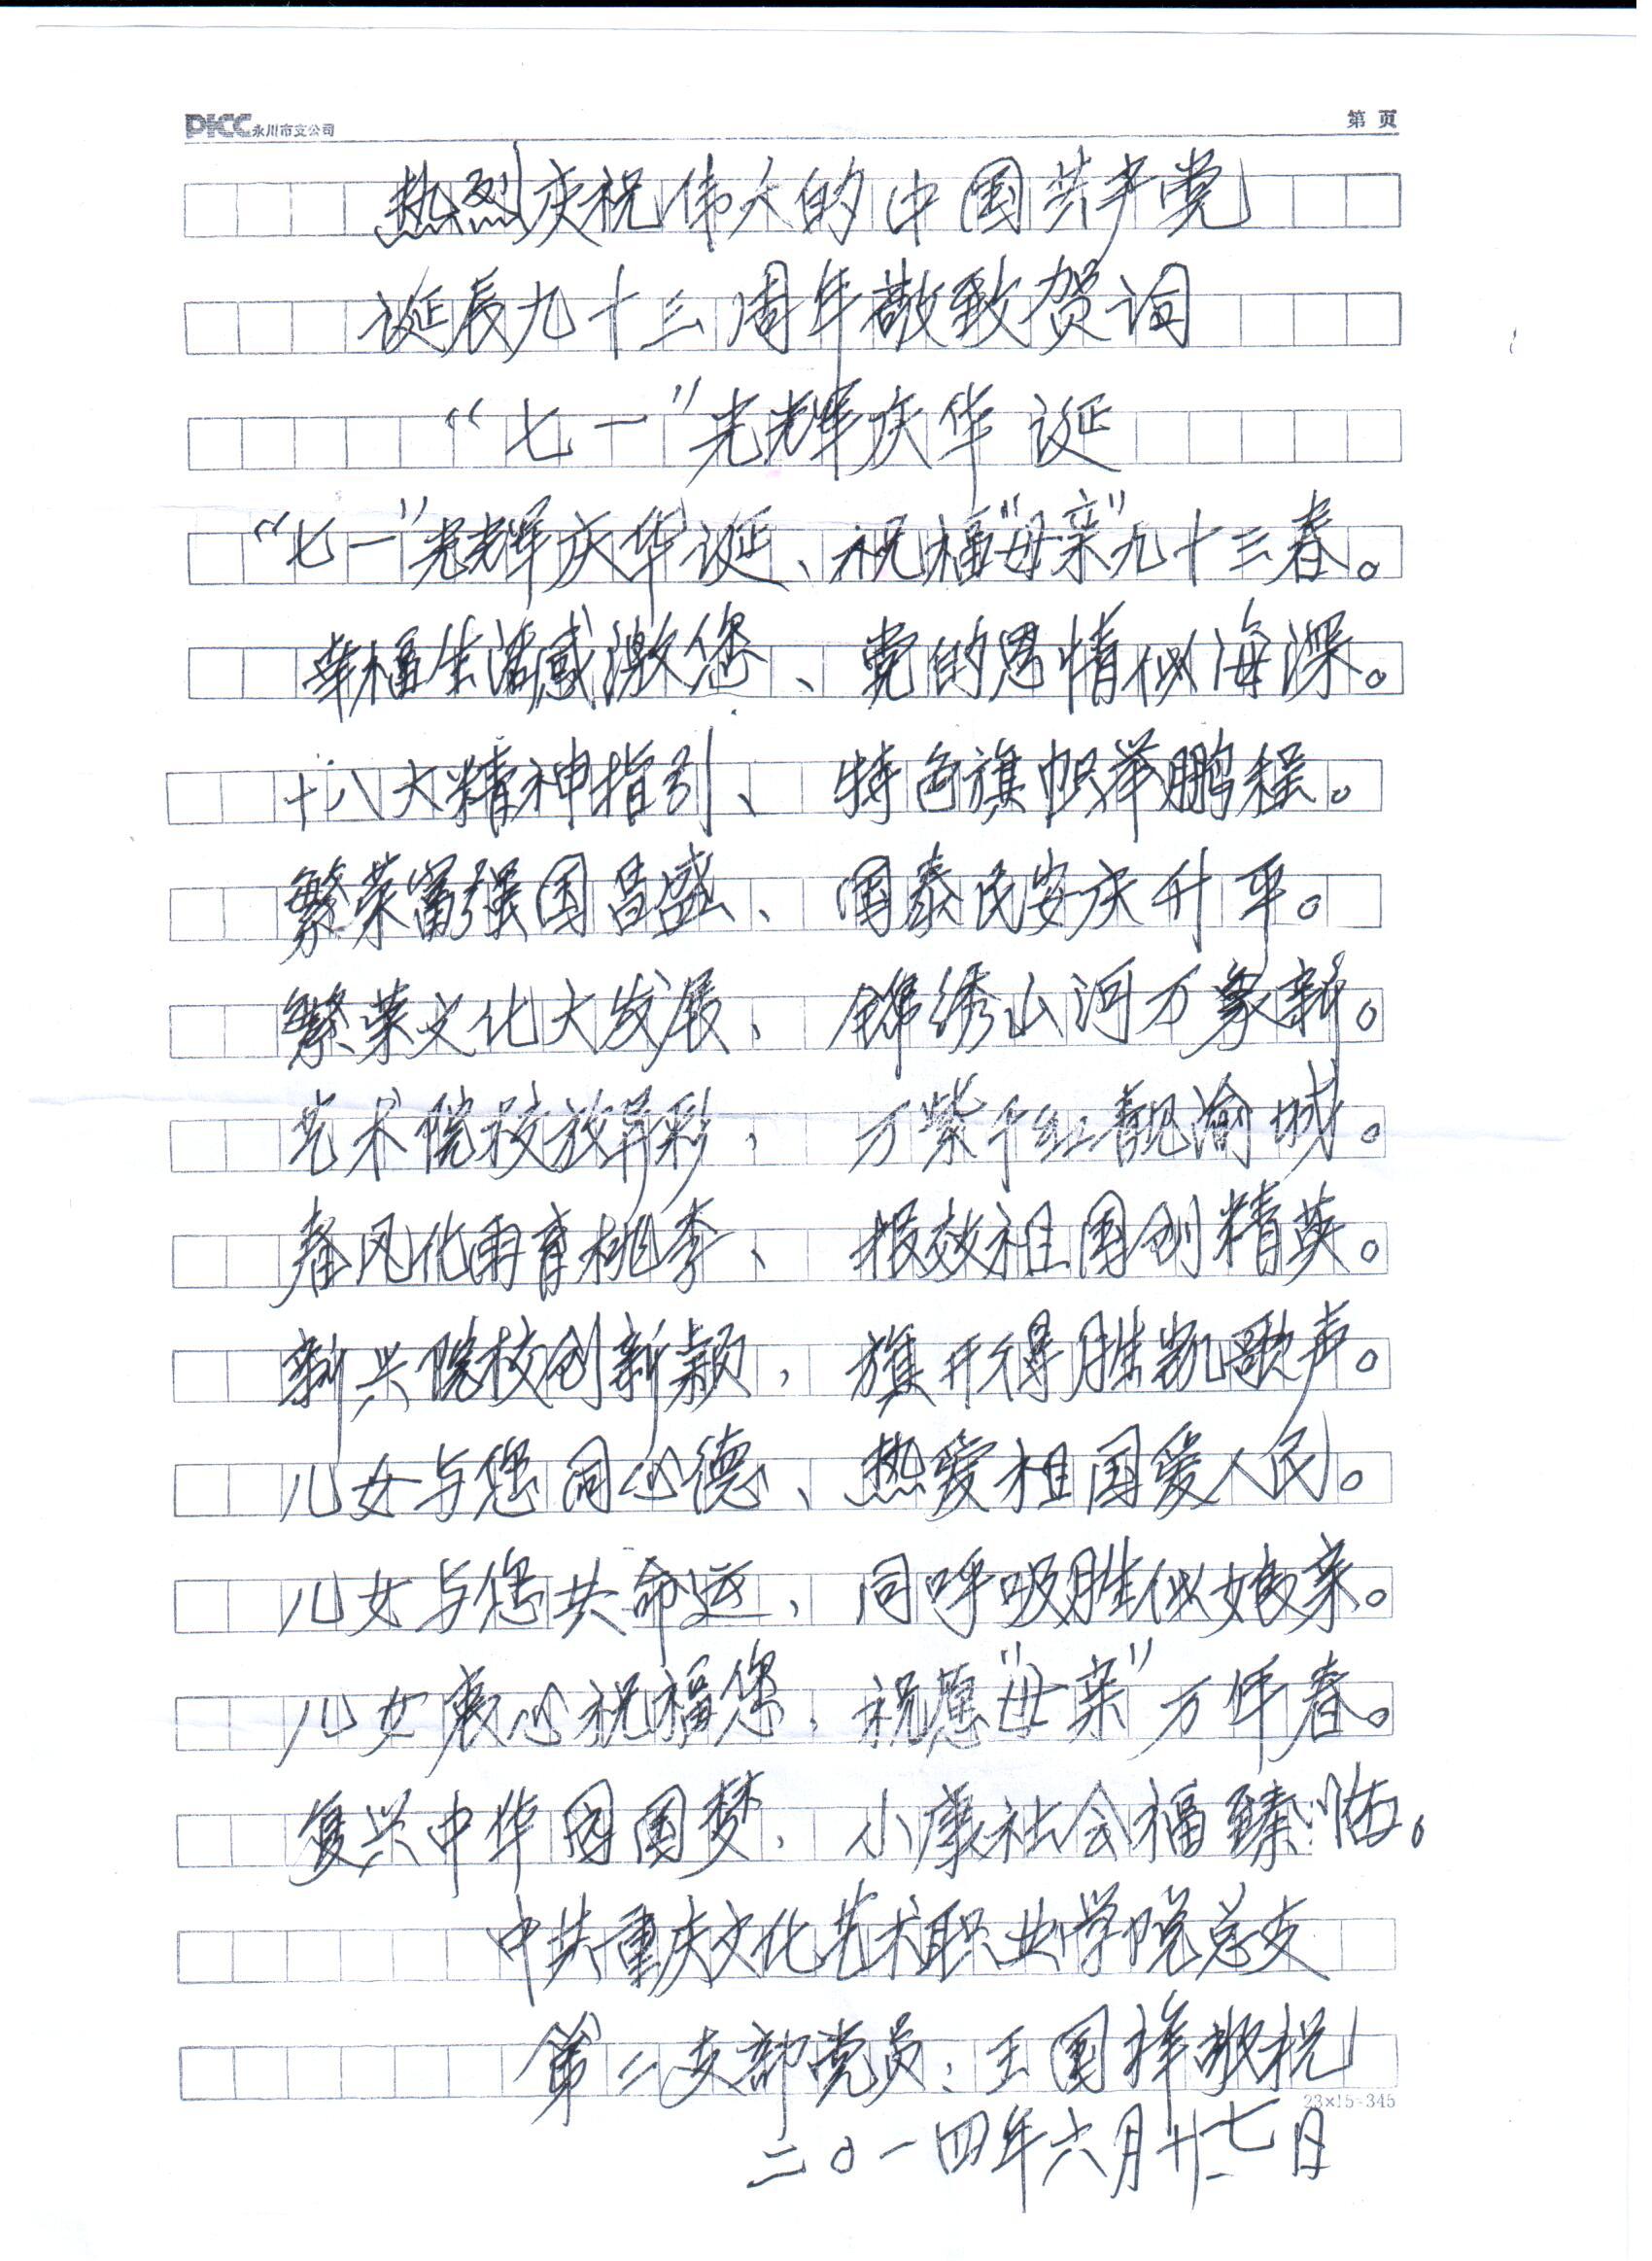 PICC永川市支公司 第 页
热烈庆祝伟大的中国共产党
诞辰九十三周年敬致贺词
“七一”光辉庆华诞
“七一”光辉庆华诞、祝福“母亲”九十三春。
幸福生活感激您、党的恩情似海深。
十八大精神指引、特色旗帜举鹏程。
繁荣富强国昌盛、国泰民安庆升平。
繁荣文化大发展、锦绣山河万象新。
艺术院校放异彩,万紫千红靓渝城。
春风化雨育桃李、报效祖国创精英。
新兴院校创新颖,旗开得胜凯歌声。
儿女与您同心德、热爱祖国爱人民。
儿女与您共命运,同呼吸胜似娘亲。
儿女衷心祝福您,祝愿“母亲”万年春。
复兴中华园国梦,小康社会福臻临。
中共重庆文化艺术职业学院总支
第二支部党员:王国祥敬祝
23×15=345
二〇一四年六月廿七日